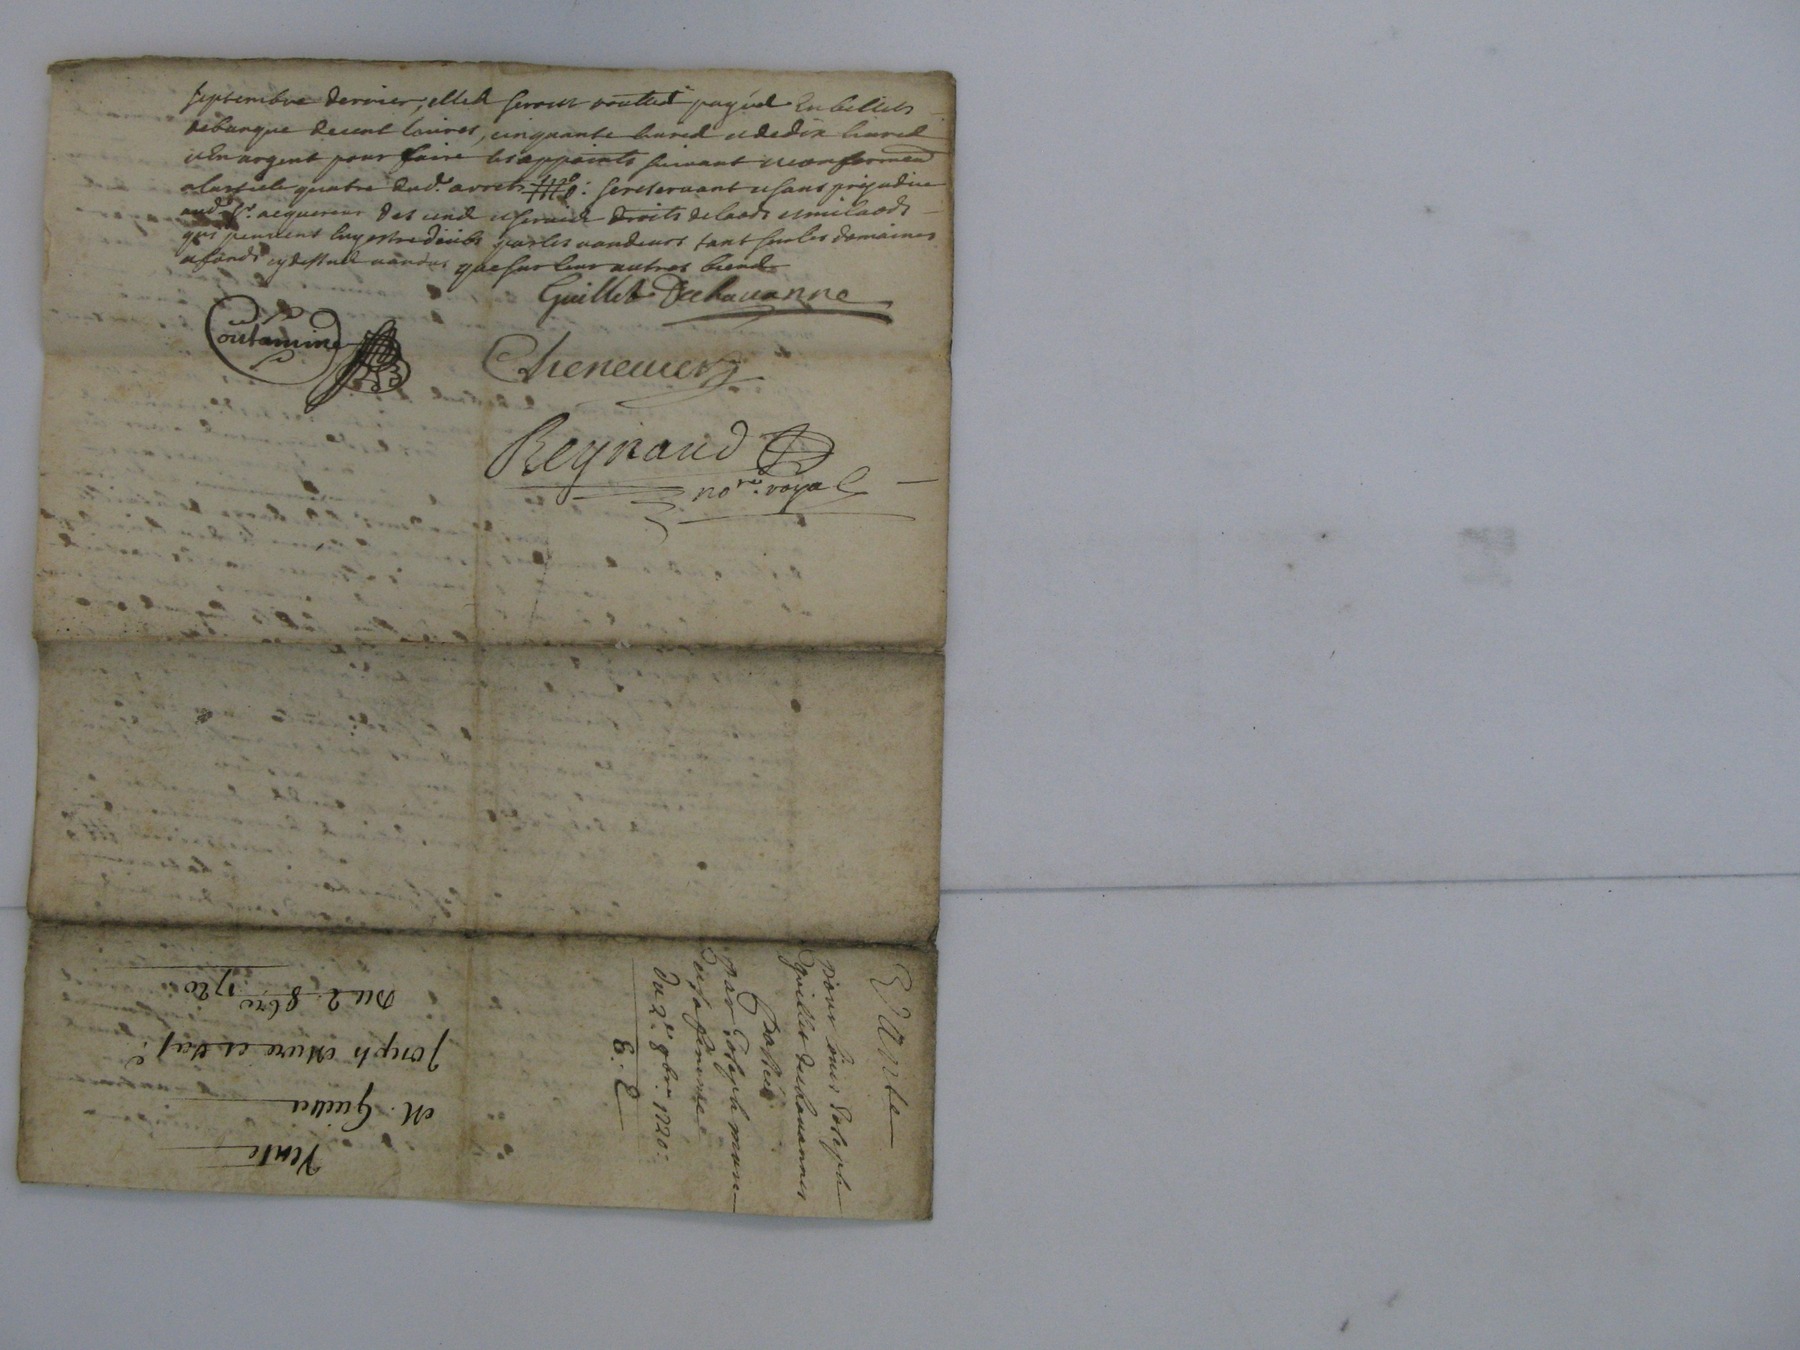 septembre dernier, elles seront toutes payées En billets
de banque de cent livres, cinquante livres et de dix livres
et En argent pour faire les appoints suivant et conformem.
a larticle quatre dud. arrest : se reservant et sans prejudice
aud. sr. acquereur des cens et servis droits de laods et milaods
qui peuvent luy estre deubs par les vandeurs tant sur les domaines
et fonds cy dessus vandus que sur leur autres biens
Guillet Dechavanne
Contamine
Chenevier
Reynaud
no.re royal
Vante
pour sieur Joseph
guillet dechavannes
passée
par Joseph mure
et sa femme
du 2e. 8bre. 1720.
E. E
Vente
M. Guillet
Joseph Mure et sa f.e
Du 2 8bre
1720